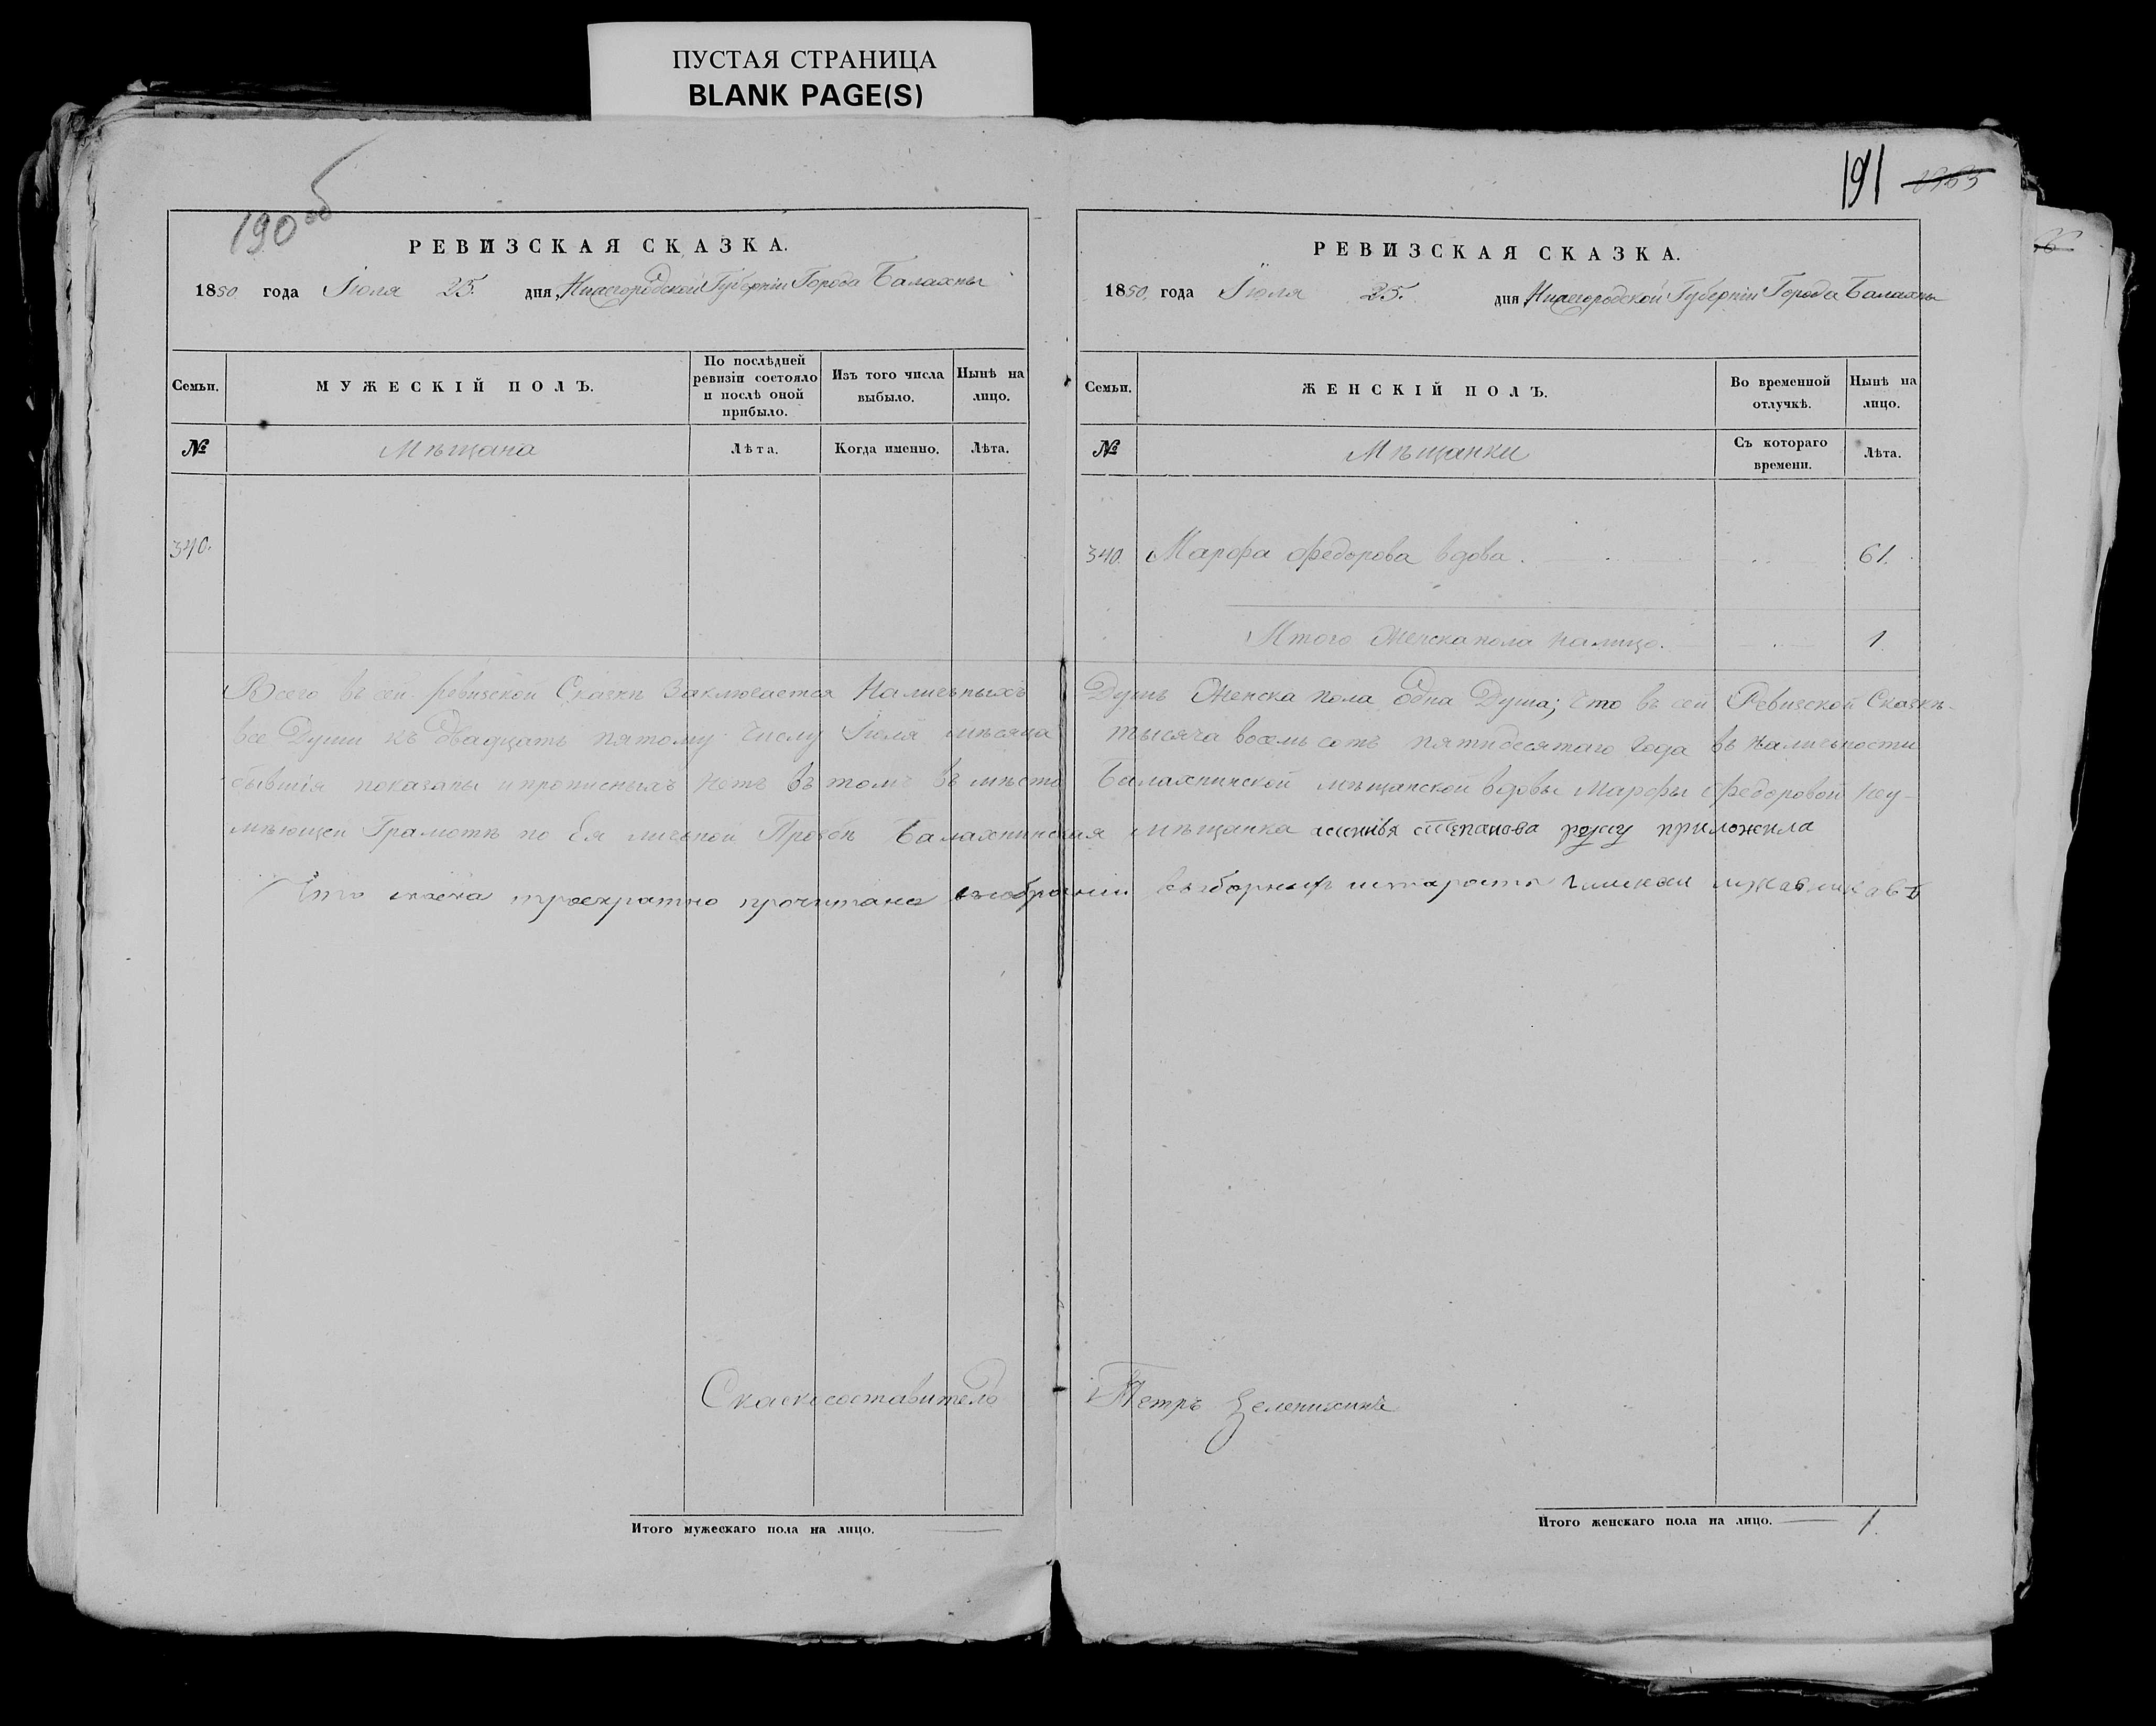 ПУСТАЯ СТРАНИЦА
BLANK PAGE(S)
190 об
РЕВИЗСКАЯ СКАЗКА.
1850 года Іюля 25. дня, Нижегородской Губерніи Города Балахны
Семьи. МУЖЕСКІЙ ПОЛЪ. По послѣдней ревизіи состояло и послѣ оной прибыло. Изъ того числа выбыло. Нынѣ на лицо.
№ Мѣщана Лѣта. Когда именно. Лѣта.
340.
191 1363
РЕВИЗСКАЯ СКАЗКА.
1850. года Іюля 25. дня, Нижегородской Губерніи Города Балахны
Семьи. ЖЕНСКІЙ ПОЛЪ. Во временной отлучкѣ. Нынѣ на лицо.
№ Мѣщанки Съ котораго времени. Лѣта.
340. Марфа Федорова вдова. 61.
Итого Женска пола налицо. 1.
Всего въ сей ревизской Сказкѣ Заключается Наличьныхъ Душъ Женска пола Одна Душа; что въ сей Ревизской Сказкѣ
все Души къ Двадцать пятому числу Іюля мѣсяца тысяча восемь сотъ пятидесятаго Года въ Наличьности
бывшія показаны и прописныхъ нетъ въ томъ въ мѣсто Балахнинской мѣщанской вдовы Марфы Федоровой Неу-
мѣющей Грамотѣ по Ея личьной Прозбѣ Балахнинская мѣщанка Степанова руку приложила
Что троекратно прочитана выборных
Скаскосоставитель Петръ Зеленихинъ
Итого мужескаго пола на лицо.
Итого женскаго пола на лицо. 1.